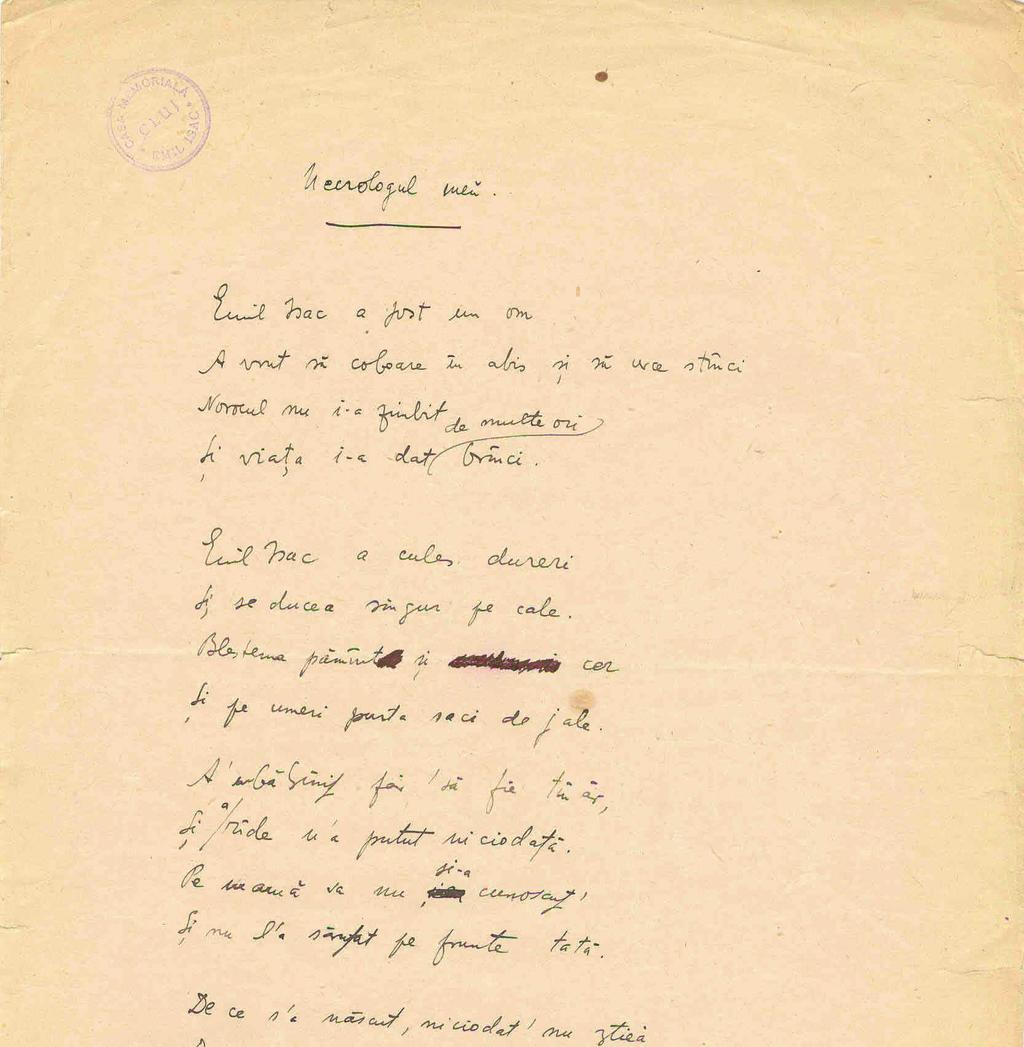 CASA MEMORIALĂ
* EMIL ISAC *
CLUJ
Necrologul meu.
Emil Isac a fost un om
A vrut să coboare în abis și să urce stînci
Norocul nu i-a zimbit de multe ori
Și viața i-a dat brînci.
Emil Isac a cules dureri
Și se ducea singur pe cale.
Blestema pămînt și cer
Și pe umeri purta saci de jale.
A'mbătrînit făr' să fie tînăr,
Și a rîde n'a putut niciodată.
Pe mamă sa nu și-a cunoscut,
Și nu l'a sărutat pe frunte tată.
De ce s'a născut, niciodat' nu știea